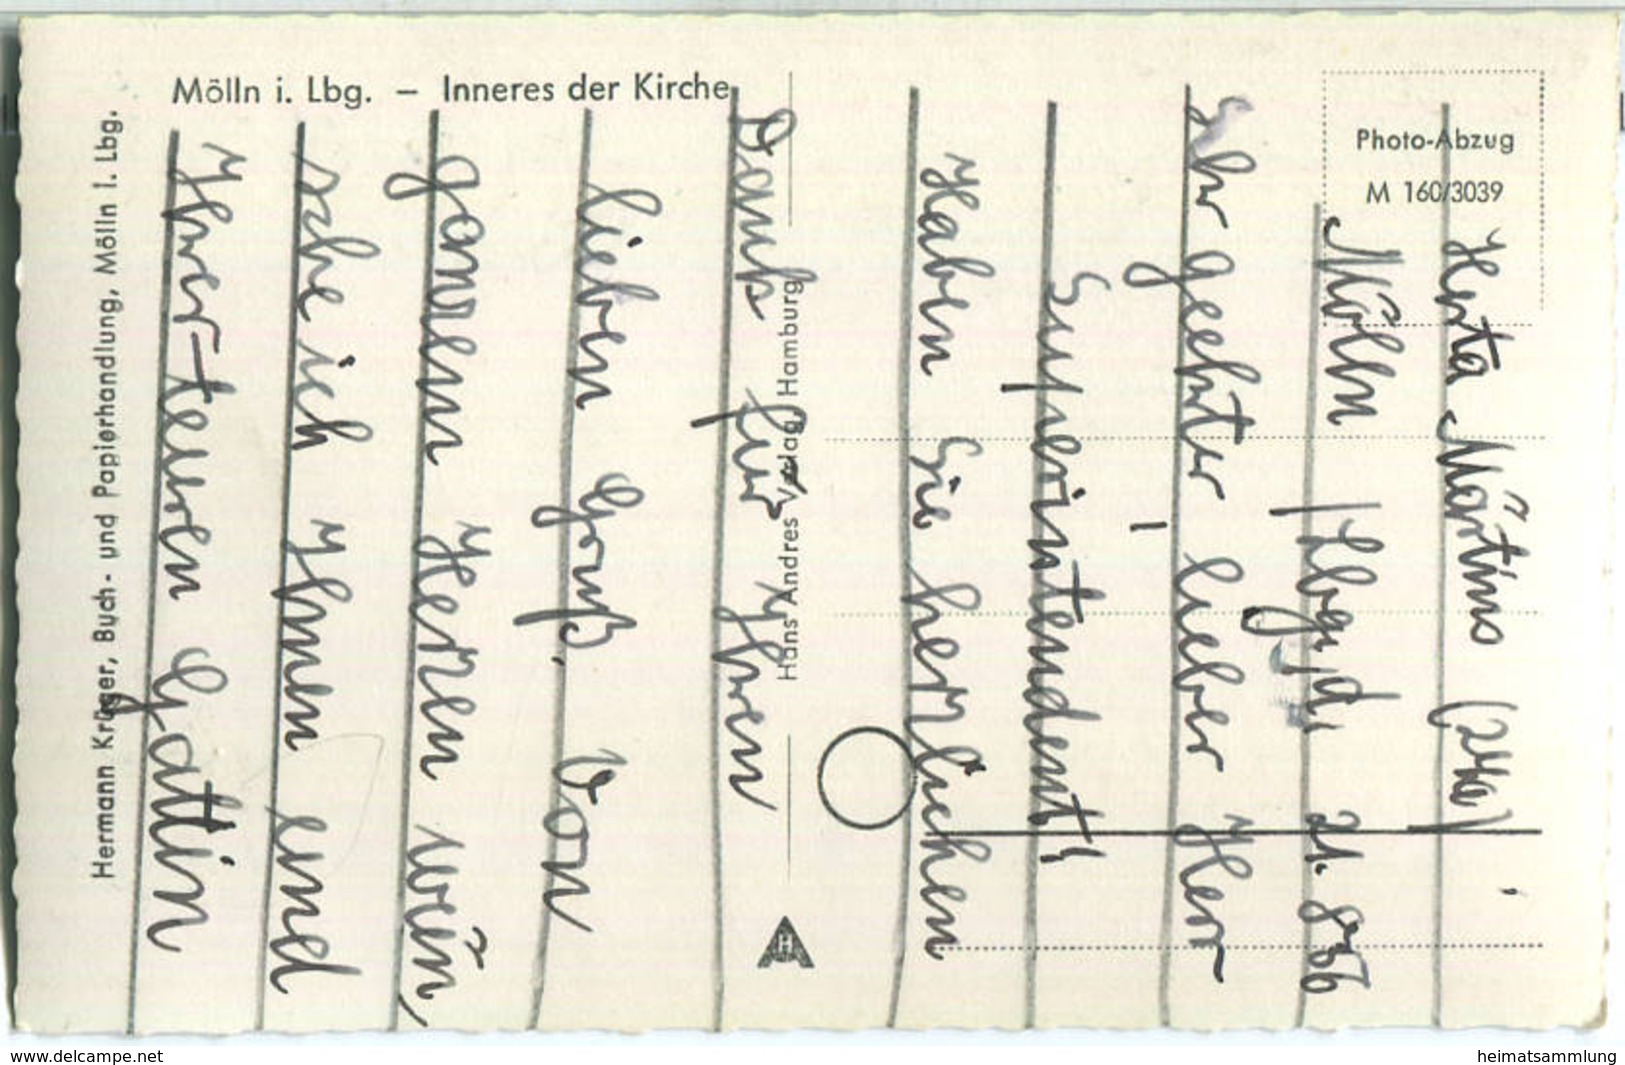 Mölln i. Lbg. – Inneres der Kirche
Photo-Abzug
M 160/3039
Hermann Krüger, Buch- und Papierhandlung, Mölln i. Lbg.
Hans Andres Verlag, Hamburg
Herta Märtins (24a)
Mölln / Lbg., d. 21. 8. 56
Sehr geehrter lieber Herr
Superintendent!
Haben Sie herzlichen
Dank für Ihren
lieben Gruß. Von
ganzem Herzen
ich Ihnen und
Ihrer teuren Gattin
www.delcampe.net
heimatsammlung